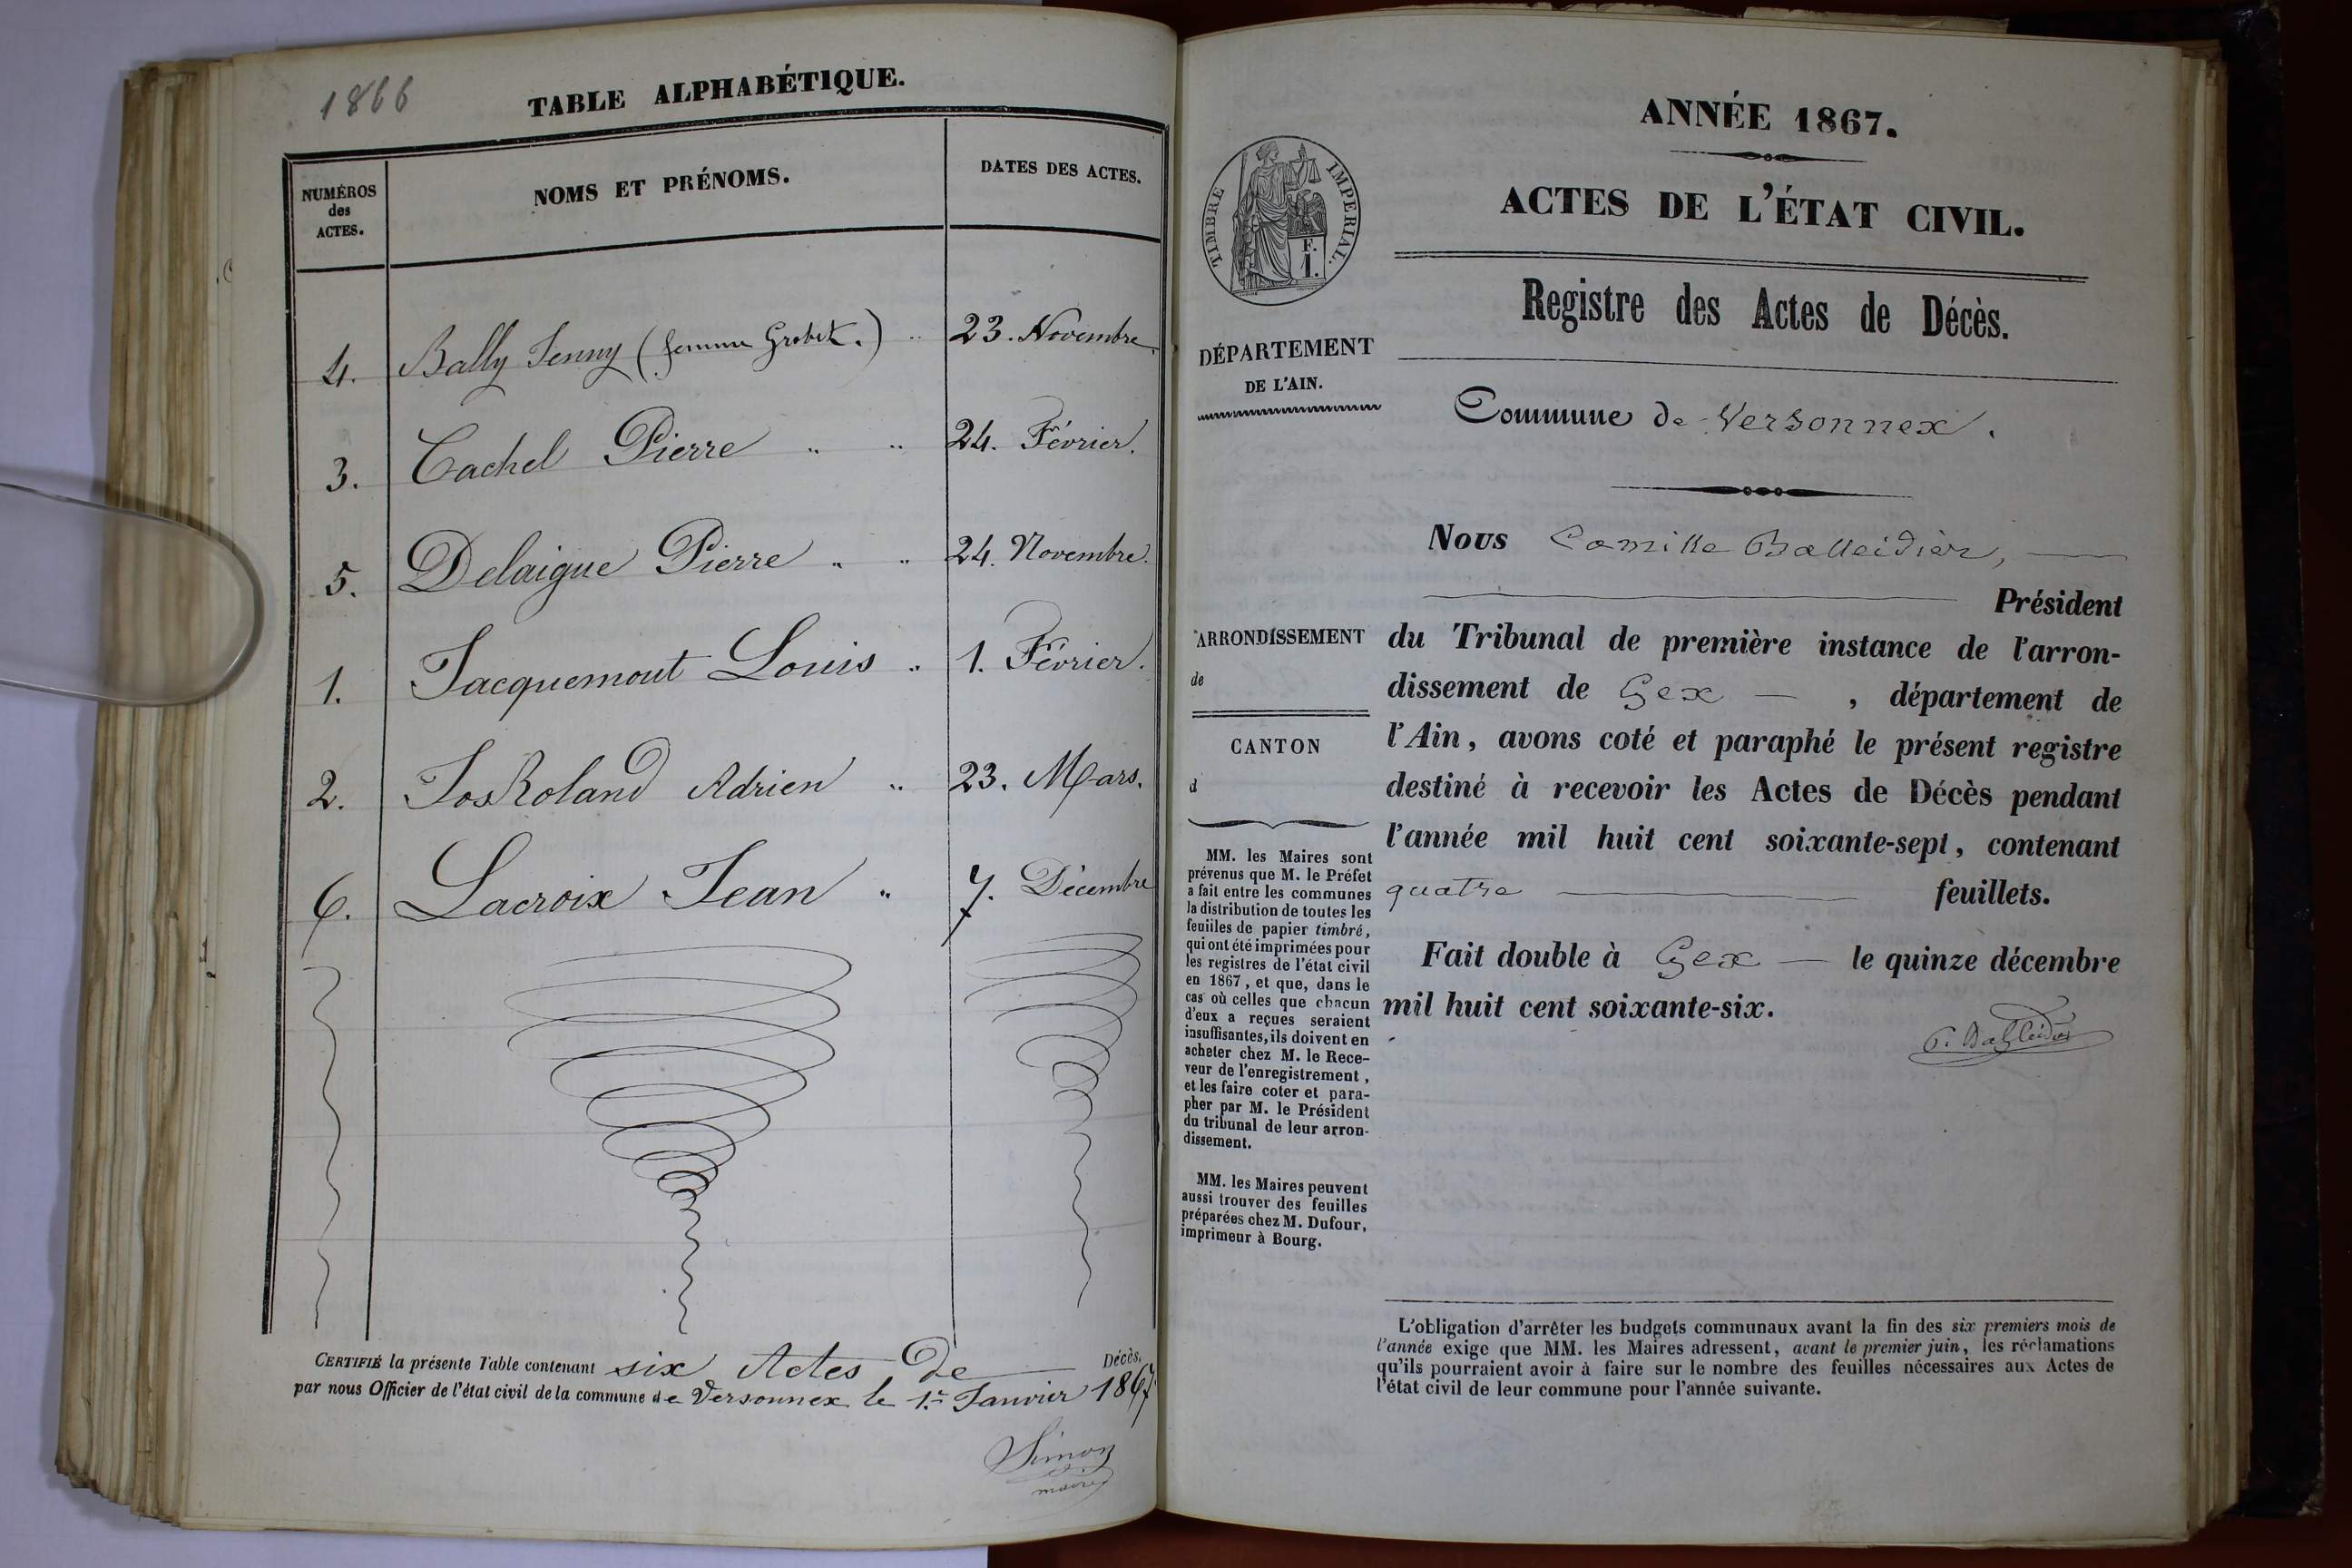 1866
TABLE ALPHABÉTIQUE.
NUMÉROS
des
ACTES.
NOMS ET PRÉNOMS.
DATES DES ACTES.
4. Bally Jenny (femme Grobet.) " 23. Novembre.
3. Cachel Pierre " " 24. Février.
5. Delaigue Pierre " " 24. Novembre.
1. Jacquemout Louis " 1. Février.
2. JosRoland Adrien " 23. Mars.
6. Lacroix Jean " 7. Décembre
CERTIFIÉ la présente Table contenant six Actes De Décès,
par nous Officier de l'état civil de la commune de Versonnex le 1er Janvier 1867
Simon
maire
ANNÉE 1867.
ACTES DE L'ÉTAT CIVIL.
Registre des Actes de Décès.
TIMBRE IMPÉRIAL.
F.
1.
DÉPARTEMENT
DE L'AIN.
Commune de Versonnex.
Nous Camille Balleidier,
Président
du Tribunal de première instance de l'arron-
dissement de Gex — , département de
l'Ain, avons coté et paraphé le présent registre
destiné à recevoir les Actes de Décès pendant
l'année mil huit cent soixante-sept, contenant
quatre feuillets.
Fait double à Gex — le quinze décembre
mil huit cent soixante-six.
C. Balleidier
ARRONDISSEMENT
de
CANTON
d
MM. les Maires sont
prévenus que M. le Préfet
a fait entre les communes
la distribution de toutes les
feuilles de papier timbré,
qui ont été imprimées pour
les registres de l'état civil
en 1867, et que, dans le
cas où celles que chacun
d'eux a reçues seraient
insuffisantes, ils doivent en
acheter chez M. le Rece-
veur de l'enregistrement,
et les faire coter et para-
pher par M. le Président
du tribunal de leur arron-
dissement.
MM. les Maires peuvent
aussi trouver des feuilles
préparées chez M. Dufour,
imprimeur à Bourg.
L'obligation d'arrêter les budgets communaux avant la fin des six premiers mois de
l'année exige que MM. les Maires adressent, avant le premier juin, les réclamations
qu'ils pourraient avoir à faire sur le nombre des feuilles nécessaires aux Actes de
l'état civil de leur commune pour l'année suivante.